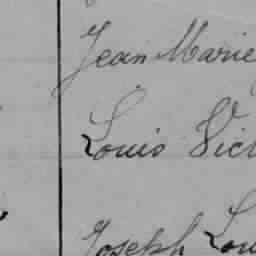 Jean Marie
Louis Vict
Joseph Lou